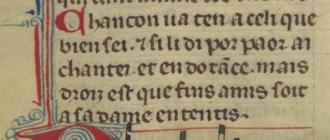 Chancon ua ten a celi que
bien sei. ⁊ si li di por paor ai
chante. et en dotāce. mais
droiz est que fins amis soit
a sa dame ententis.